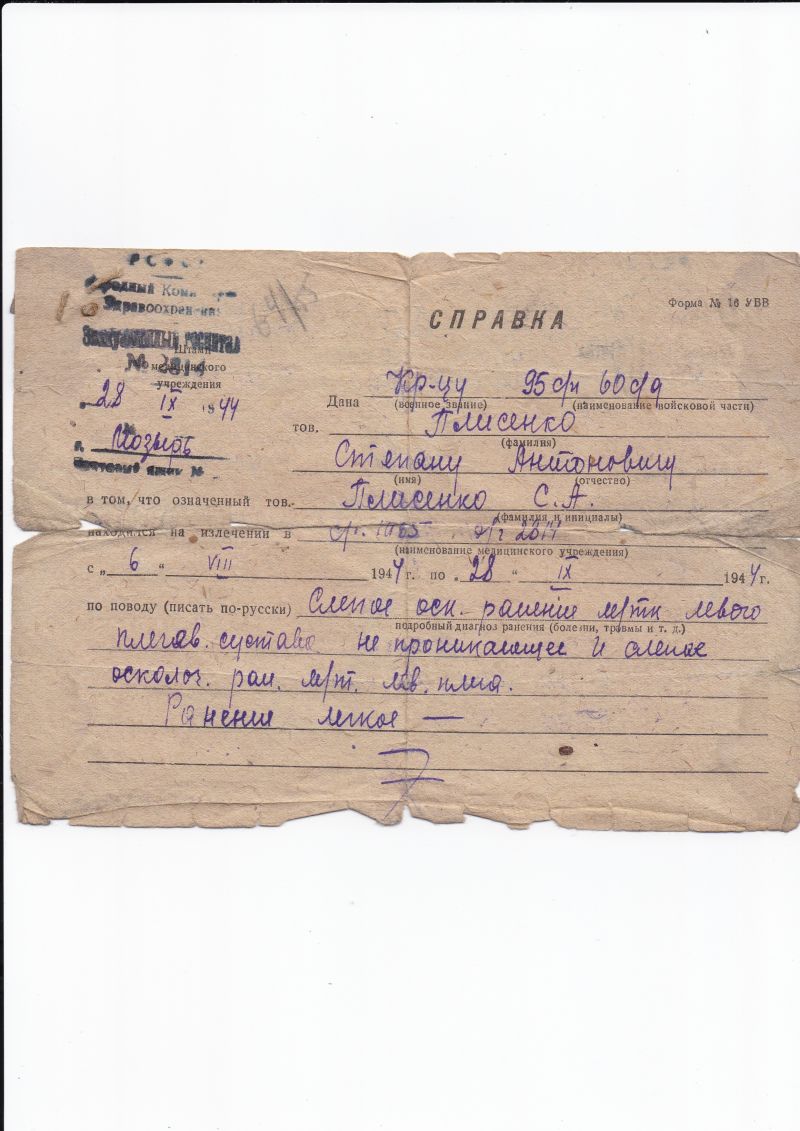 РСФСР
Народный Комиссар
Здравоохранения
64/15
Форма № 16 УВВ
СПРАВКА
Штамп
№
медицинского
учреждения
"28 IX 1944
г. Мозырь
Почтовый ящик №
Дана Кр-цу 95 сп 60 сд
(военное звание) (наименование войсковой части)
тов. Плисенко
(фамилия)
Степану Антоновичу
(имя) (отчество)
в том, что означенный тов. Плисенко С. А.
(фамилия и инициалы)
находился на излечении в
(наименование медицинского учреждения)
с „ 6 “ VIII 1944 г. по „ 28 “ IX 1944 г.
по поводу (писать по-русски) Слепое оск. ранение м/тк левого
подробный диагноз ранения (болезни, травмы и т. д.)
плечев. сустава не проникающее и слепое
осколоч. ран. м/т. лев. плеча.
Ранение легкое —